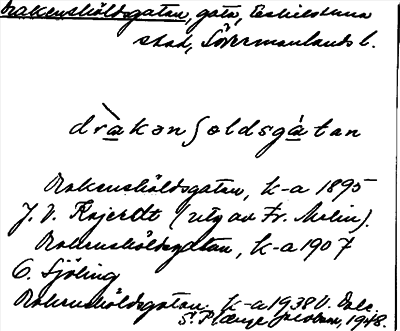 Drakensköldsgatan, gata, Eskilstuna
stad, Södermanlands l.
dràkənʃoldsgátan
Drakensköldsgatan, k-a 1895
J. V. (utg av Fr. Molin).
Drakensköldsgatan, k-a 1907
C. Sjöling
Drakensköldsgatan. k-a 1938 V.
S. 1948.